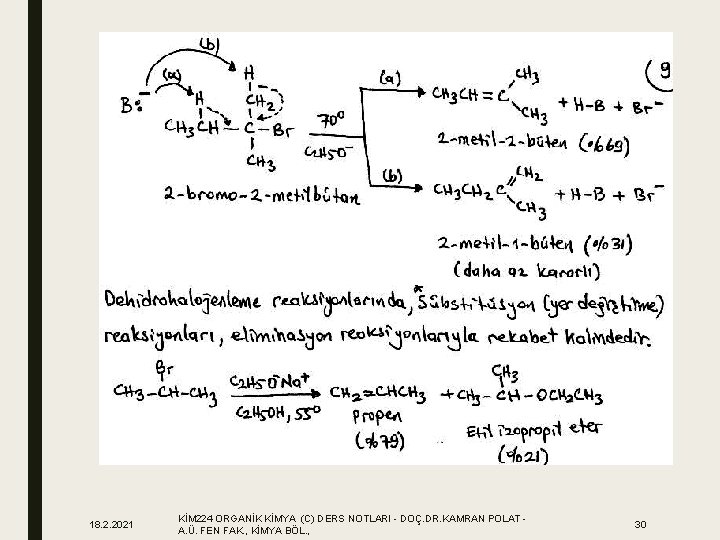 (b)
(a) H H (a) CH3 (9
B:⁻ CH2 CH3CH=C + H-B + Br⁻
CH3CH-C-Br 70° CH3
CH3 C2H5O⁻ 2-metil-2-büten (%69)
2-bromo-2-metilbütan (b) CH2
CH3CH2C + H-B + Br⁻
CH3
2-metil-1-büten (%31)
(daha az kararlı)
Dehidrohalojenleme reaksiyonlarında, *Sübstitüsyon (yer değiştirme)
reaksiyonları, eliminasyon reaksiyonlarıyla rekabet halindedir.
Br CH3
CH3-CH-CH3 C2H5O⁻Na⁺ CH2=CHCH3 + CH3-CH-OCH2CH3
C2H5OH, 55° Propen Etil izopropil eter
(%79) (%21)
18.2.2021
KİM224 ORGANİK KİMYA (C) DERS NOTLARI - DOÇ.DR.KAMRAN POLAT -
A.Ü. FEN FAK., KİMYA BÖL.,
30